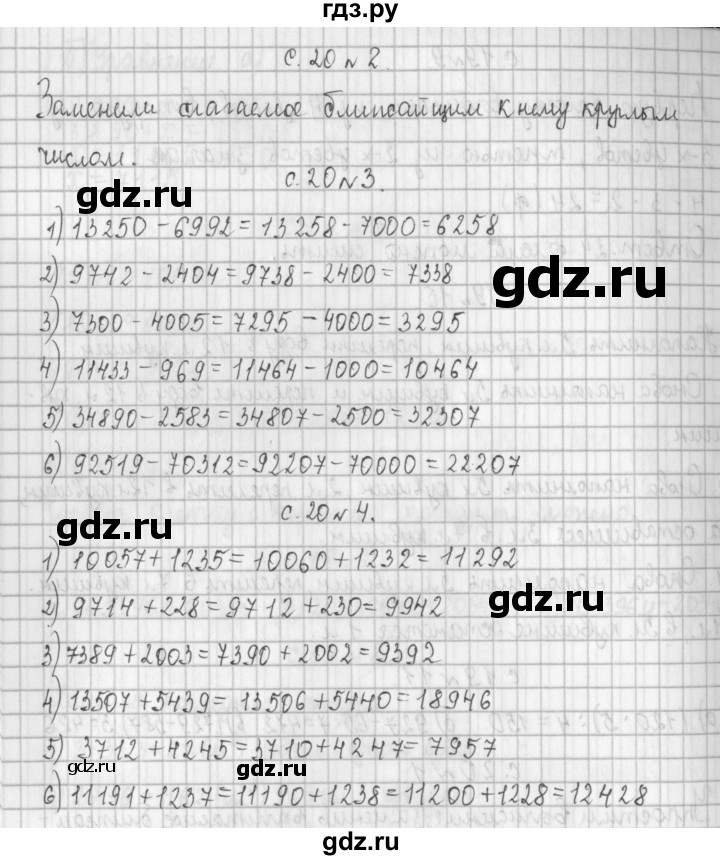 гдз.ру
с. 20 № 2.
Заменили слагаемое ближайшим к нему круглым
числом.
gdz.ru
с. 20 № 3.
1) 13250 - 6992 = 13258 - 7000 = 6258
2) 9742 - 2404 = 9738 - 2400 = 7338
gdz.ru
3) 7300 - 4005 = 7295 - 4000 = 3295
4) 11433 - 969 = 11464 - 1000 = 10464
5) 34890 - 2583 = 34807 - 2500 = 32307
6) 92519 - 70312 = 92207 - 70000 = 22207
gdz.ru
с. 20 № 4.
1) 10057 + 1235 = 10060 + 1232 = 11292
2) 9714 + 228 = 9712 + 230 = 9942
gdz.ru
3) 7389 + 2003 = 7390 + 2002 = 9392
4) 13507 + 5439 = 13506 + 5440 = 18946
5) 3712 + 4245 = 3710 + 4247 = 7957
gdz.ru
gdz.ru
6) 11191 + 1237 = 11190 + 1238 = 11200 + 1228 = 12428
gdz.ru